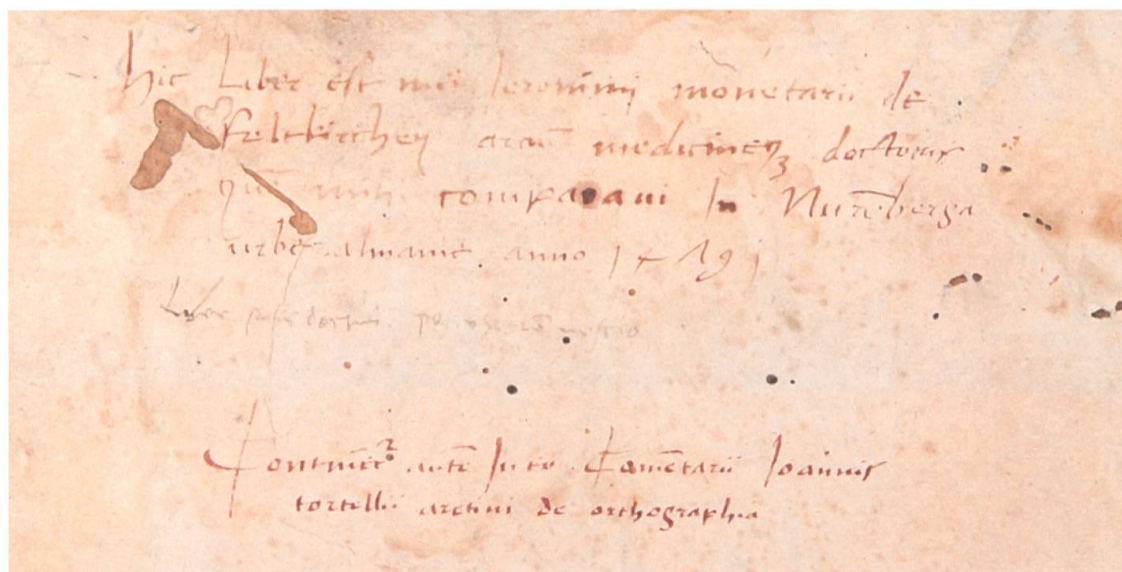 hic Liber est mei Ieronimi monetarii de
feltkirchen arcīū medicineqʒ doctoris
quē mihi comparavi In Nurēberga
urbe almanie anno 1491
Liber
Contineͭ² autē In eo Comētarii Ioannis
tortellii aretini de orthographia